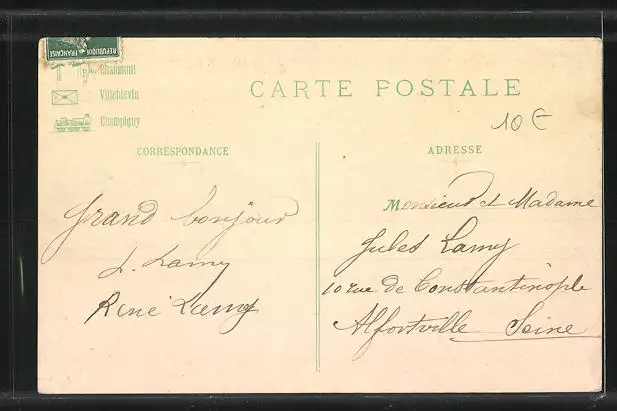 REPUBLIQUE FRANÇAISE
Chaumont
Villeblevin
Champigny
CARTE POSTALE
10 €
CORRESPONDANCE
ADRESSE
Grand bonjour
L. Lamy
René Lamy
Monsieur et Madame
Jules Lamy
10 rue de Constantinople
Alfortville Seine